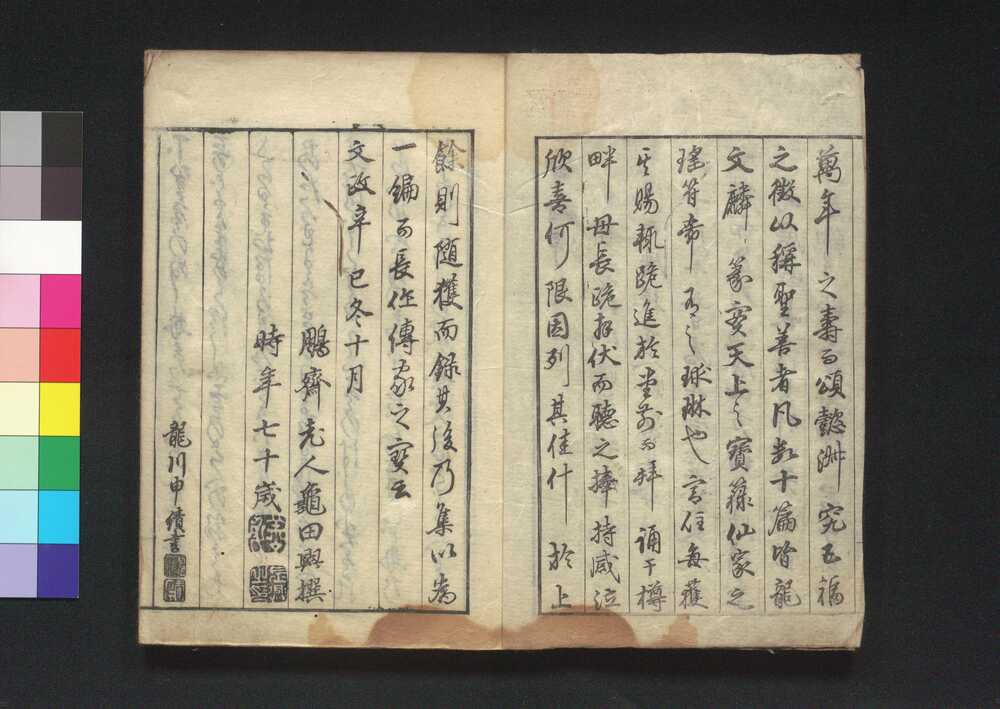 萬年之壽而頌懿淑究五福
之徵以稱聖善者凡数十篇皆龍
文麟篆寔天上之寶籙仙家之
瑤符希有之球琳也言任每獲
其賜輒跪進於堂前而拜誦于樽
畔母長跪拜伏而聴之捧持感泣
欣喜何限因列其佳什於上
餘則随獲而録其後乃集以為
一編而長作傳家之寶云
文政辛巳冬十月
鵬齋老人龜田興撰
時年七十歳
龍川申績書